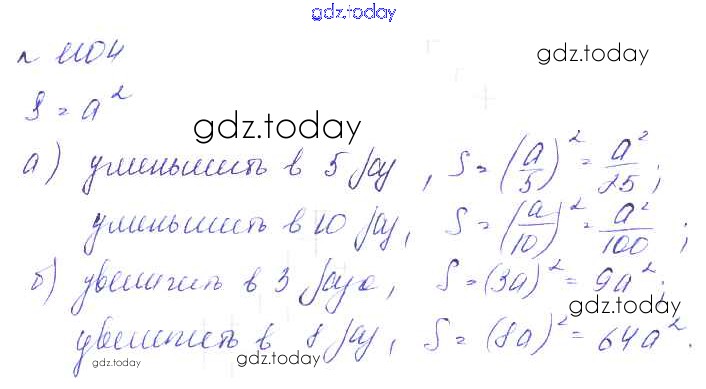 gdz.today
n 1104
gdz.today
S = a²
gdz.today
а) уменьшить в 5 раз, S = (a/5)² = a²/25;
уменьшить в 10 раз, S = (a/10)² = a²/100;
б) увеличить в 3 раза, S = (3a)² = 9a²;
gdz.today
увеличить в 8 раз, S = (8a)² = 64a².
gdz.today
gdz.today